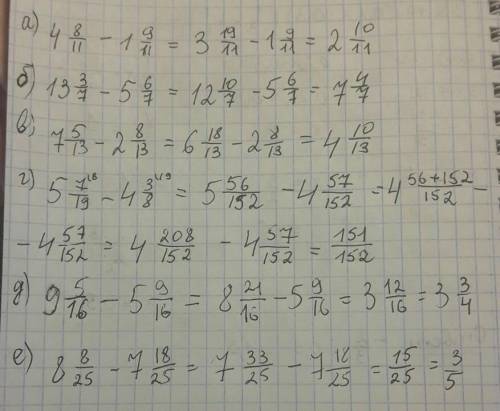 а) 4 8/11 - 1 9/11 = 3 19/11 - 1 9/11 = 2 10/11
б) 13 3/7 - 5 6/7 = 12 10/7 - 5 6/7 = 7 4/7
в) 7 5/13 - 2 8/13 = 6 18/13 - 2 8/13 = 4 10/13
г) 5 7/19 - 4 3/8 = 5 56/152 - 4 57/152 = 4 56+152/152 -
- 4 57/152 = 4 208/152 - 4 57/152 = 151/152
д) 9 5/16 - 5 9/16 = 8 21/16 - 5 9/16 = 3 12/16 = 3 3/4
е) 8 8/25 - 7 18/25 = 7 33/25 - 7 18/25 = 15/25 = 3/5